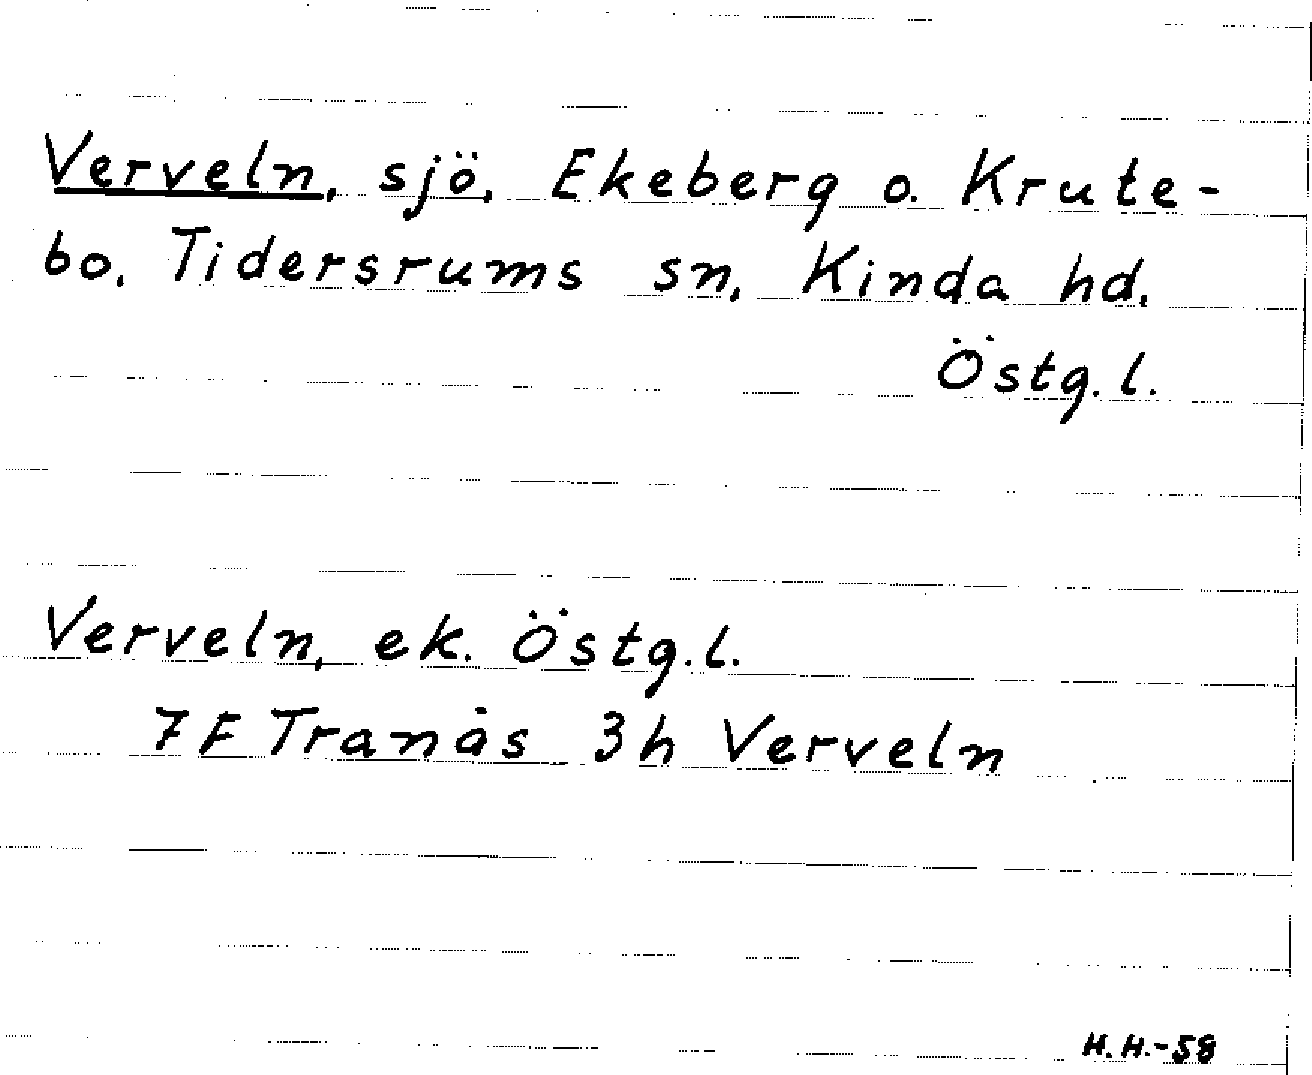 Verveln, sjö. Ekeberg o. Krute-
bo. Tidersrums sn, Kinda hd.
Östg. l.
Verveln, ek. Östg. l.
7 F Tranås 3h Verveln
H. H.-58